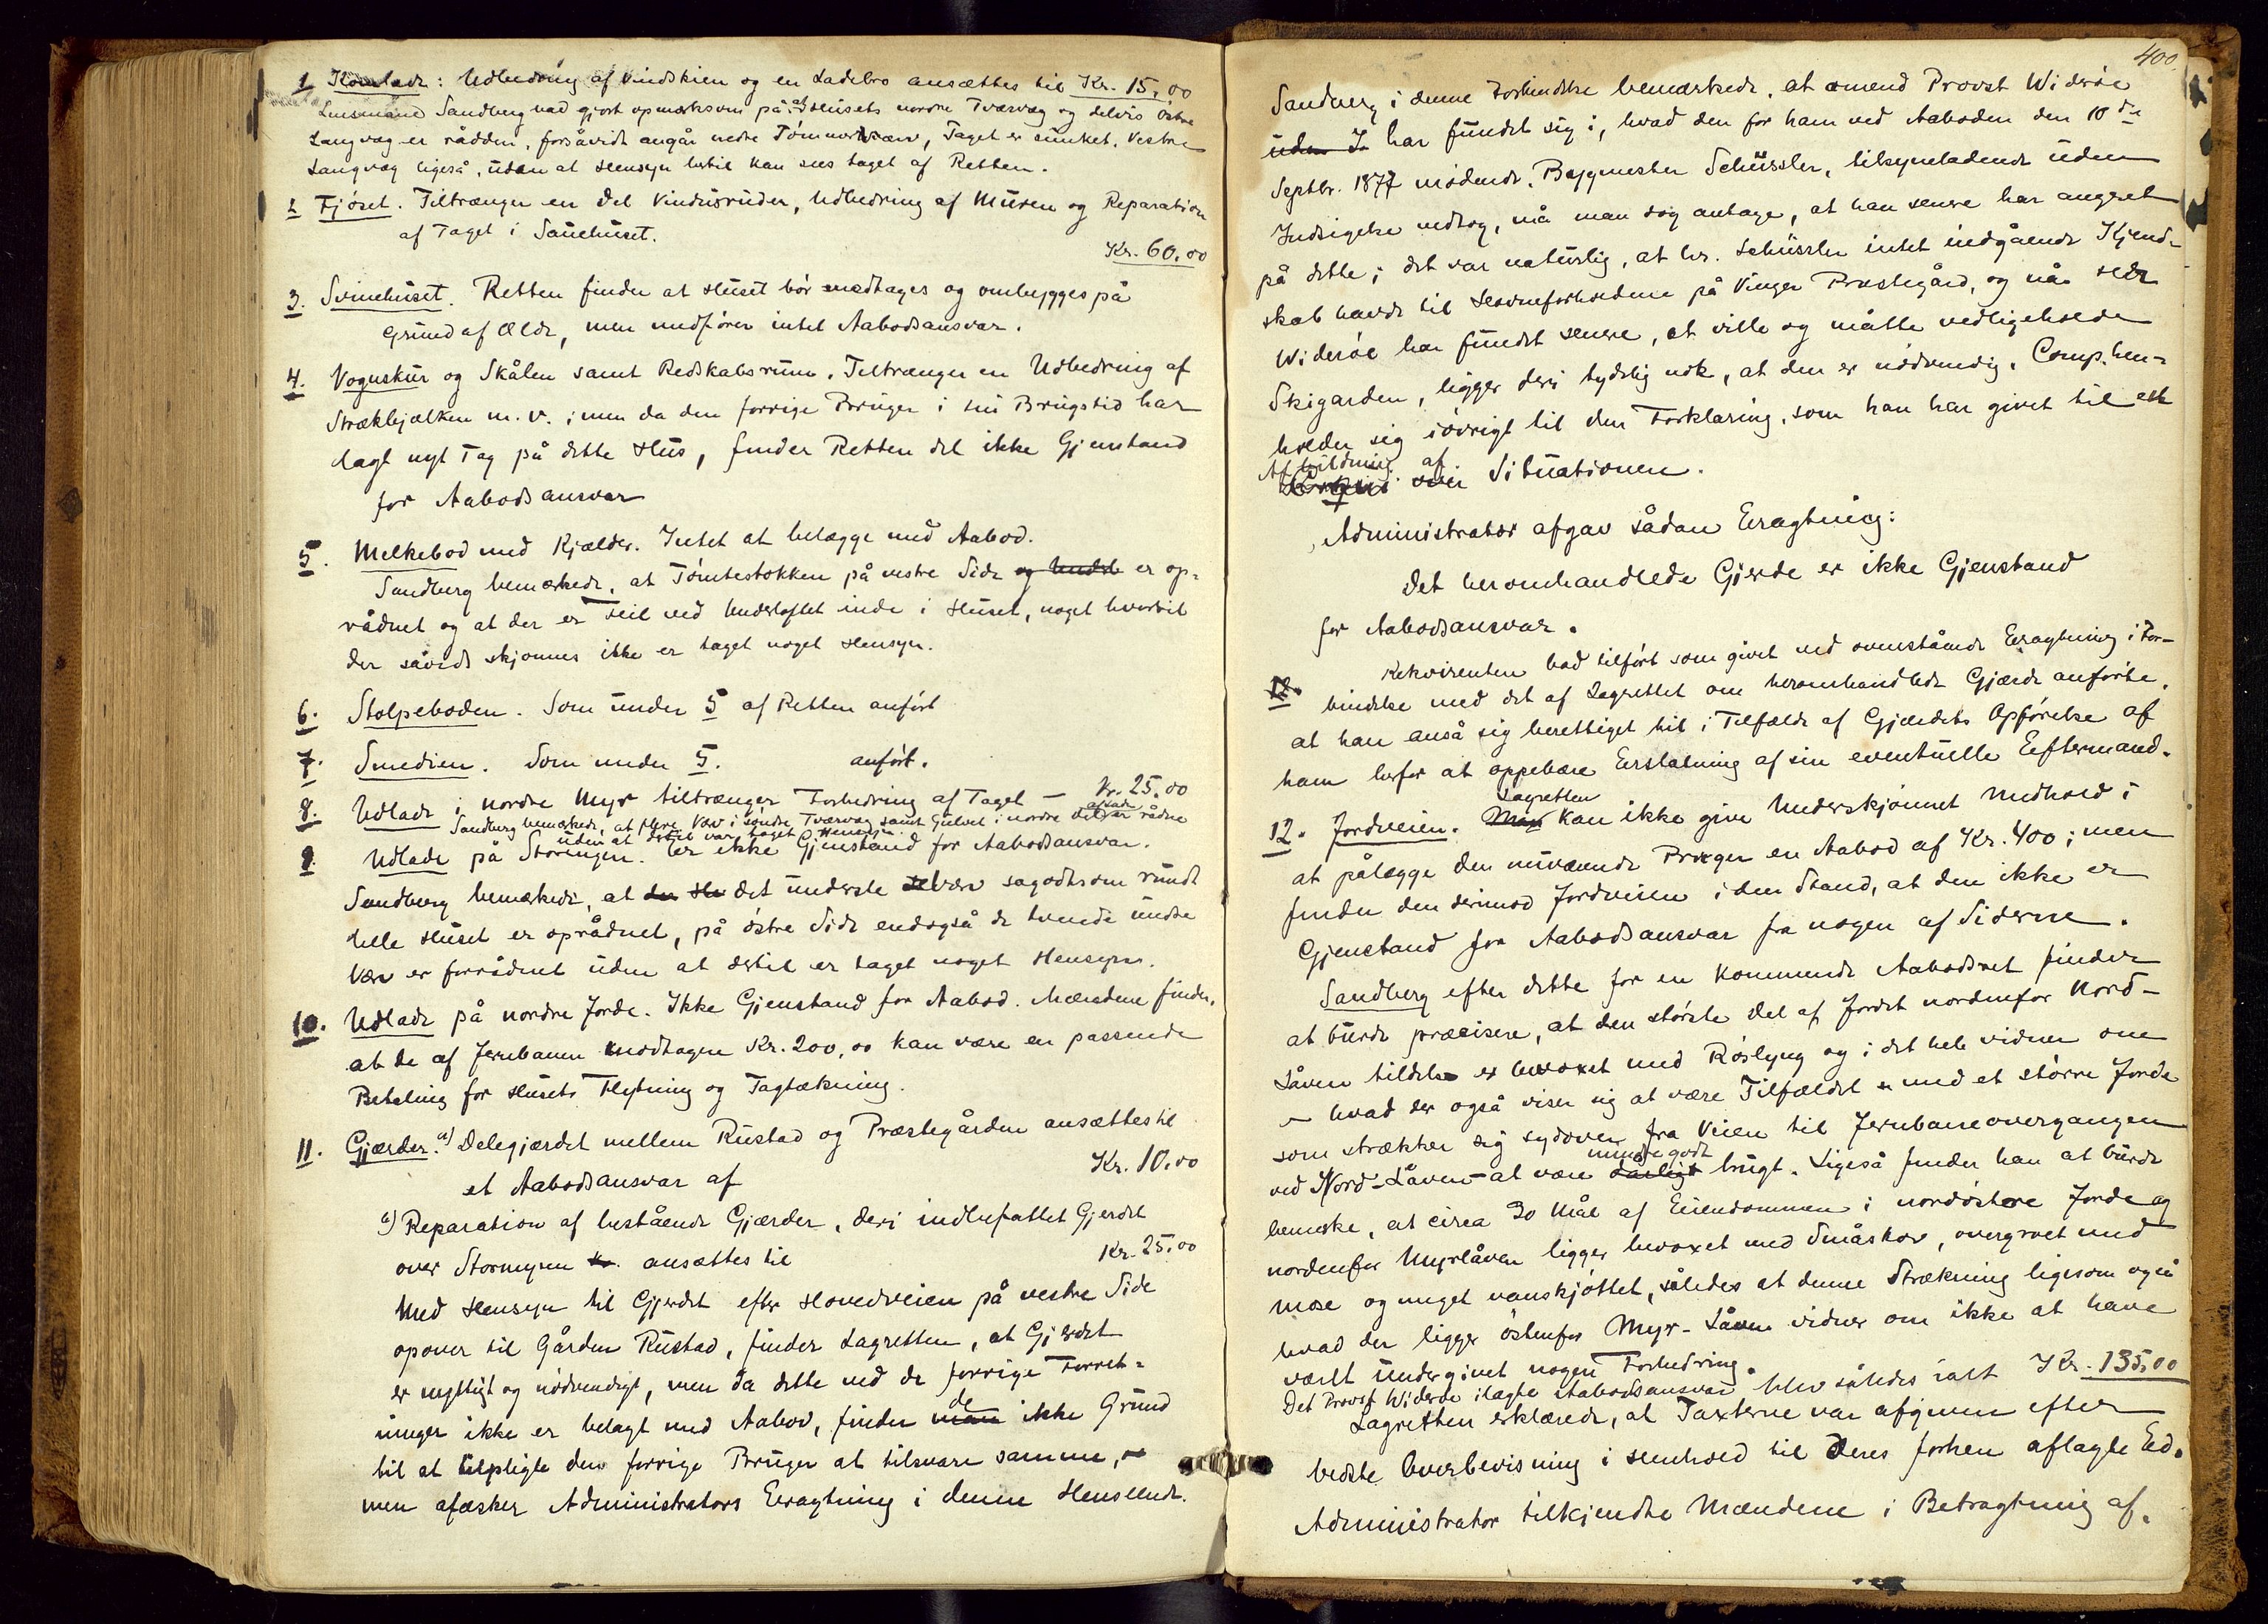 1 Kornlade: Udbedring af Vindskien og en Ladebro ansættes til Kr. 15,00
Lensmand Sandberg bad gjort opmerksom på at Husets nordre Tværvæg og delvis östre
Langvæg er rådden, forsåvidt angår nedre Tömmerhvarv, Taget er sunket. Vestre
Langvæg ligeså, uden at Hensyn hertil kan sees taget af Retten.
2 Fjöset. Tiltrænger en Del Vindusruder, Udbedring af Muren og Reparation
af Taget i Sauehuset.
Kr. 60,00
3. Svinehuset. Retten finder at Huset bör nedtages og ombygges på
Grund af Ælde, men medfører intet Aabodsansvar.
4. Vognskur og Skålen samt Redskabsrum. Tiltrænger en Udbedring af
Strækbjælken m. v.; men da den forrige Bruger i sin Brugstid har
lagt nyt Tag på dette Hus, finder Retten det ikke Gjenstand
for Aabodsansvar
5. Melkebod med Kjælder. Intet at belægge med Aabod.
Sandberg bemærkede, at Tömtestokken på vestre Side og Undst er op-
rådnet og at der er Feil ved Underloftet inde i Huset, noget hvortil
der såvidt skjönnes ikke er taget noget Hensyn.
6. Stolpeboden. Som under 5 af Retten anfört
7. Smedien. Som under 5. anfört.
8. Udlade i nordre Myr tiltrænger Forbedring af Taget — Kr. 25,00
Sandberg bemærkede, at flere Varv i söndre Tværvæg samt Gulvet i nordre Del af Lade er rådne
uden at dertil var taget Hensyn.
9. Udlade på Storengen. Er ikke Gjenstand for Aabodsansvar.
Sandberg bemærkede, at der Hu det underste Hvarv sagodtsom rundt
hele Huset er oprådnet, på östre Side endogså de tvende undre
Varv er forrådnet uden at dertil er taget noget Hensyn.
10. Udlade på nordre Jorde. Ikke Gjenstand for Aabod. Mændene finder,
at de af Jernbanen modtagne Kr. 200,00 kan være en passende
Betaling for Husets Flytning og Tagtækning.
11. Gjærder. a) Delegjærdet mellem Rustad og Præstegården ansættes til
et Aabodsansvar af Kr. 10,00
a) Reparation af bestående Gjærder, deri indbefattet Gjerdet
over Stormyren Kr. ansættes til Kr. 25,00
Med Hensyn til Gjerdet efter Hovedveien på vestre Side
opover til Gården Rustad, finder Lagretten, at Gjerdet
er nyttigt og nödvendigt, men da dette ved de forrige Forret-
ninger ikke er belagt med Aabod, finder man de ikke Grund
til at tilpligte den forrige Bruger at tilsvare samme, –
men afæsker Administrators Eragtning i denne Henseende.
400
Sandberg i denne Forbindelse bemærkede, at omend Provst Wideröe
uden I har fundet sig i, hvad den for ham ved Aaboden den 10de
Septbr. 1877 mödende, Bygmester Schüssler, tilsyneladende uden
Indsigelse vedtog, må man dog antage, at han senere har angret
på dette; det var naturlig, at hr. Schüssler intet indgående Kjend-
skab havde til Havneforholdene på Vinger Præstegård, og når hr.
Wideröe har fundet senere, at ville og måtte vedligeholde
Skigarden, ligger deri tydelig nok, at den er nödvendig. Comp. hen-
holder sig iövrigt til den Forklaring, som han har givet til
Afbildning af over Situationen.
Administrator afgav sådan Eragtning:
Det heromhandlede Gjerde er ikke Gjenstand
for Aabodsansvar.
12. Rekvirenten bad tilfört som givet ved ovenstående Eragtning i For-
bindelse med det af Lagrettet om heromhandlede Gjærde anförte,
at han anså sig berettiget til i Tilfælde af Gjærdets Opförelse af
ham herfor at oppebære Erstatning af sin eventuelle Eeftermand.
12. Jordveien. Man Lagretten kan ikke give Underskjönnet Medhold i
at pålægge den nuværende Bruger en Aabod af Kr. 400; men
finder den derimod Jordveien i den Stand, at den ikke er
Gjenstand for Aabodsansvar fra nogen af Siderne.
Sandberg efter dette for en kommende Aabodsret finder
at burde præcisere, at den störste Del af Jordet nordenfor Nord-
Låven tildels er bevoxet med Röslyng og i det hele vidner om
– hvad der også viser sig at være Tilfældet med et större Jorde
som strækker sig sydover fra Veien til Jernbaneovergangen
ved Nord-Låven – at være dårligt mindre godt brugt. Ligeså finder han at burde
bemerke, at circa 30 Mål af Eiendommen i nordöstre Jorde og
nordenfor Myrlåven ligger bevoxet med Småskov, overgroet med
mose og meget vanskjöttet, således at denne Strækning ligesom også
hvad der ligger östenfor Myr-Låven vidner om ikke at have
vært undergivet nogen Forbedring.
Det Provst Wideröe ilagte Aabodsansvar blev således ialt Kr. 135,00
Lagretten erklærede, at Taxterne var afgivne efter
bedste Overbevisning i Henhold til deres forhen aflagte Ed.
Administrator tilkjendte Mændene i Betragtning af,